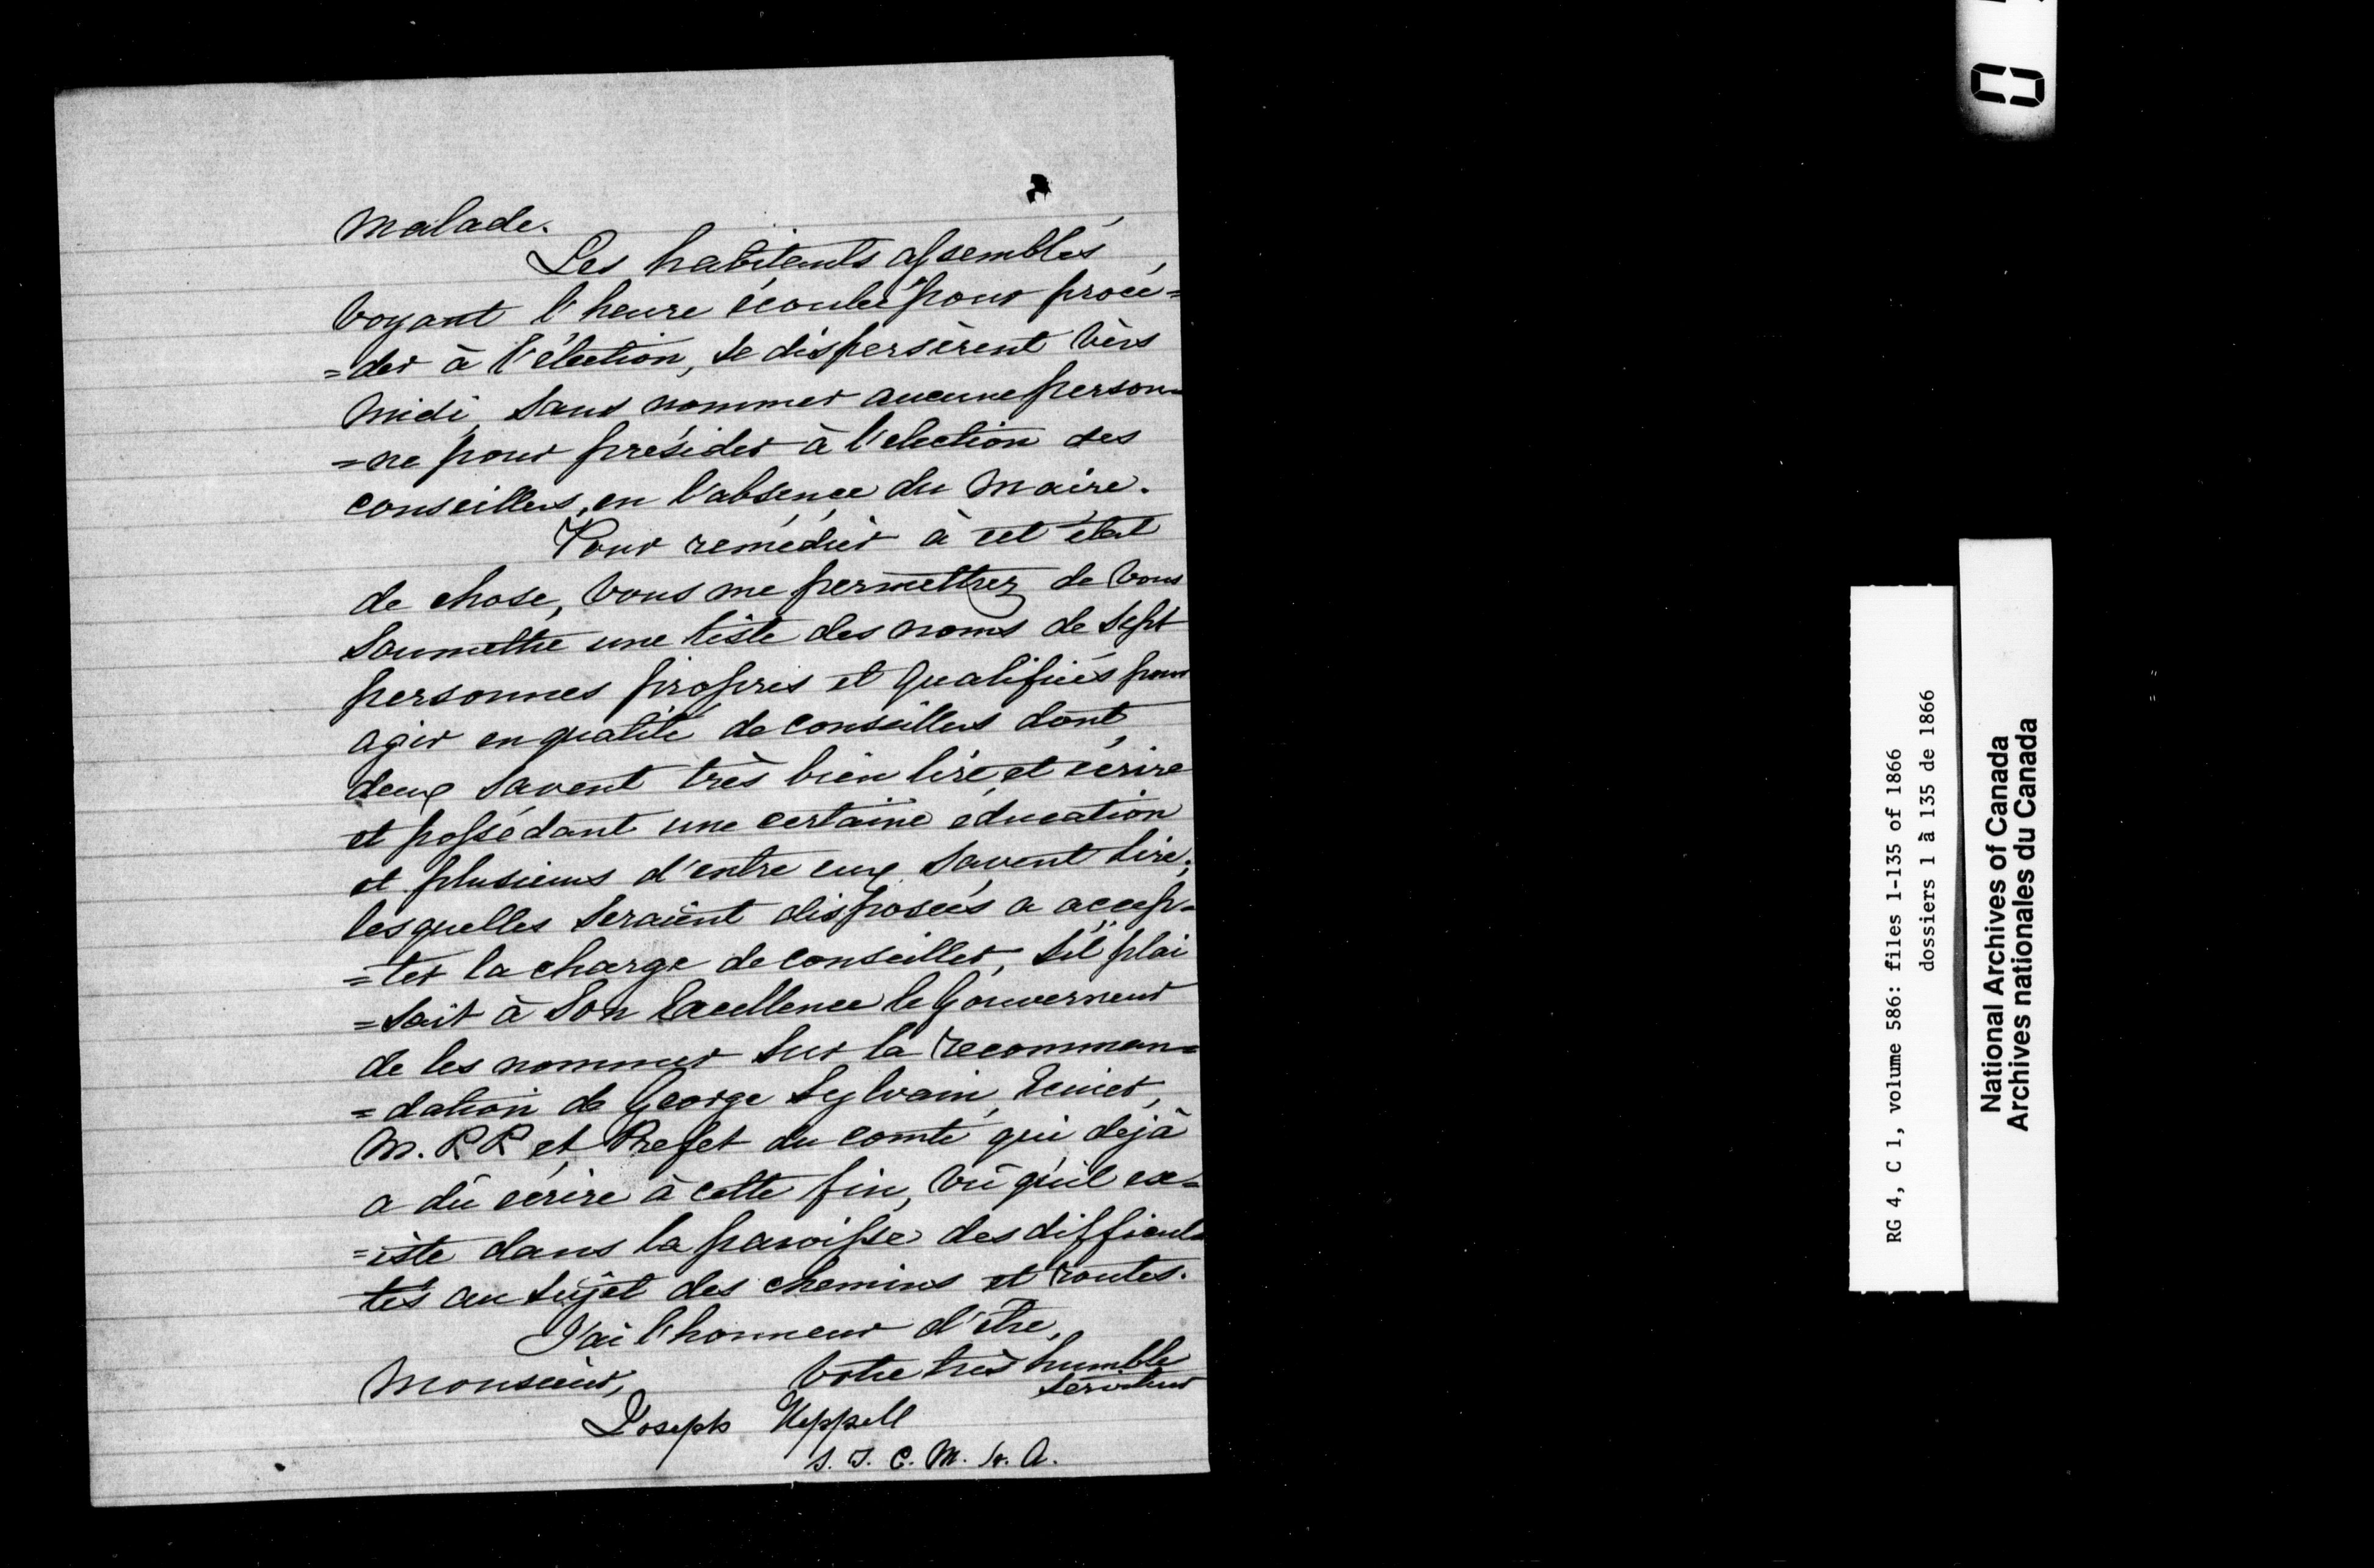 malade.
Les habitants assemblés,
voyant l'heure écoulée pour procé=
=der à l'élection, se dispersèrent vèrs
midi, sans nommer aucune person=
=ne pour présider à l'election des
conseillers, en l'absence du Maire.
Pour remédier à cet état
de chose, vous me permettrez de vous
soumettre une liste des noms de sept
personnes propres et qualifiées pour
agir en qualité de conseillers dont
deux savent très bien lire et écrire
et possédant une certaine éducation
et plusieurs d'entre eux savent lire;
lesquelles seraient disposées a accep=
=ter la charge de conseiller, s'il plai
=sait à Son Excellence le Gouverneur
de les nommer sur la recomman=
=dation de George Sylvain, Ecuier,
M. P P et Prefet du comté qui déjà
a dû écrire à cette fin, vû qu'il ex=
=iste dans la paroisse des difficul=
tés au sujet des chemins et routes.
J'ai l'honneur d'être,
Monsieur, Votre très humble
serviteur
Joseph Keppell
S. T. C. M. St. A.
RG 4, C 1, volume 586: files 1-135 of 1866
dossiers 1 à 135 de 1866
National Archives of Canada
Archives nationales du Canada